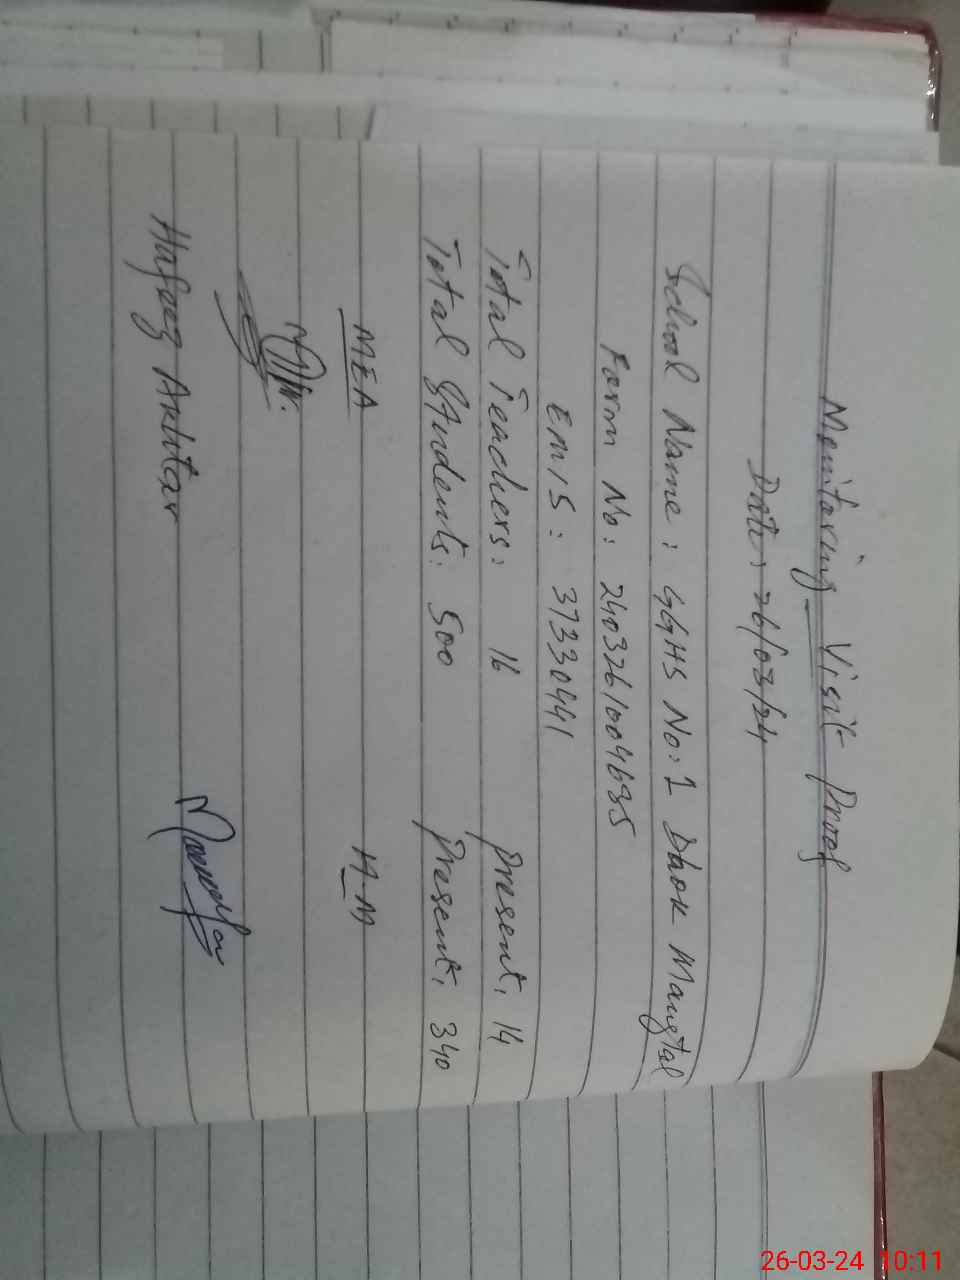 Monitaring Visit Proof
Date: 26/03/24
School Name: GGHS No: 1 Dhok Mangtal
Form No: 2403261004635
EMIS: 37330441
Total Teachers: 16 Present, 14
Total Students: 500 Present, 340
MEA H-M
Hafeez Akhtar
26-03-24 10:11